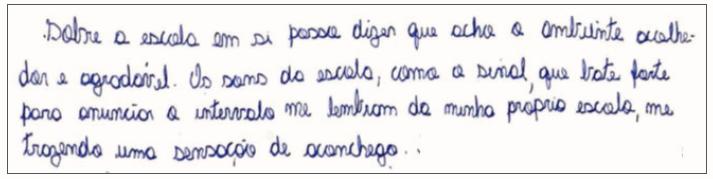 Sobre a escola em si posso dizer que acho o ambiinte acolhe-
dor e agradável. Os sons da escola, como o sinal, que bate forte
para anunciar o intervalo me lembram da minha propria escola, me
trazendo uma sensação de aconchego...